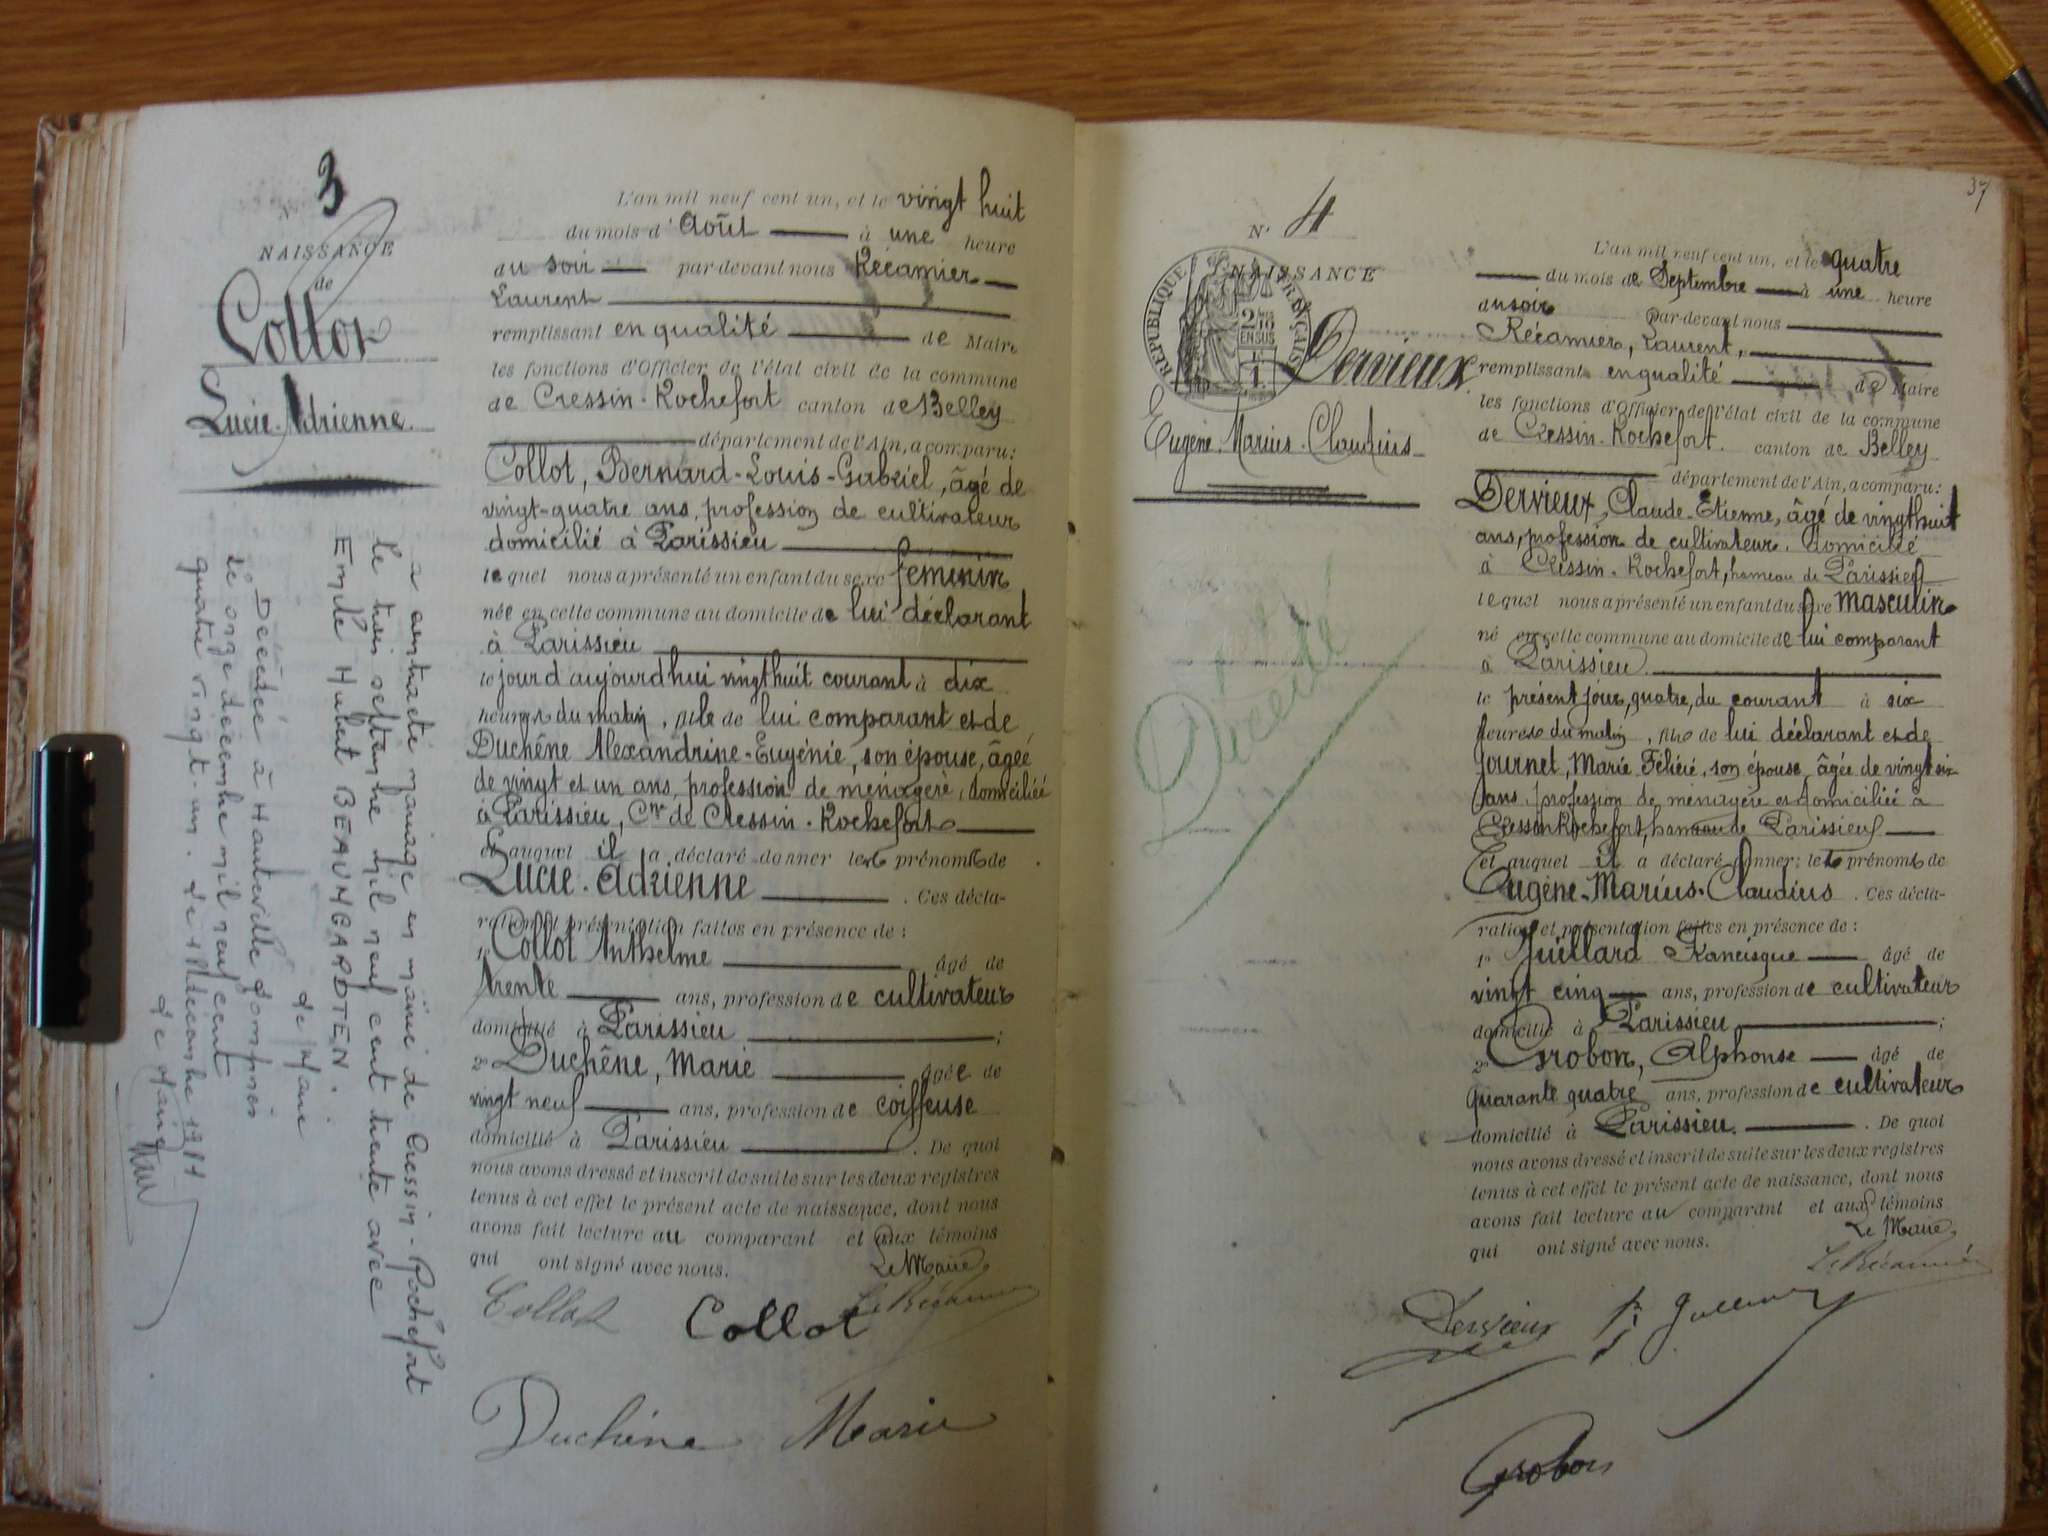 N° 3
NAISSANCE
de
Collot
Lucie-Adrienne.
a contracté mariage en mairie de Cressin-Rochefort
le trois septembre mil neuf cent trente avec
Emile Hubert BEAUMGARDTEN.
le Maire
Décédée à Hauteville-Lompnes
le onze décembre mil neuf cent
quatre vingt-un. le 11 Décembre 1981
le Maire
L'an mil neuf cent un, et le vingt huit
du mois d'Août à une heure
du soir par-devant nous Récamier
Laurent
remplissant en qualité de Maire
les fonctions d'Officier de l'état civil de la commune
de Cressin-Rochefort canton de Belley
département de l'Ain, a comparu:
Collot, Bernard-Louis-Gabriel, âgé de
vingt-quatre ans, profession de cultivateur
domicilié à Parissieu
lequel nous a présenté un enfant du sexe féminin
née en cette commune au domicile de lui déclarant
à Parissieu
le jour d'aujourd'hui vingt huit courant à dix
heures du matin, fille de lui comparant et de
Duchêne Alexandrine-Eugénie, son épouse, âgée
de vingt et un ans, profession de ménagère, domiciliée
à Parissieu, Cne de Cressin-Rochefort
et auquel il a déclaré donner les prénoms de
Lucie-Adrienne. Ces décla-
ration et présentation faites en présence de:
1° Collot Anthelme âgé de
trente ans, profession de cultivateur
domicilié à Parissieu;
2° Duchêne, Marie âgée de
vingt neuf ans, profession de coiffeuse
domicilié à Parissieu. De quoi
nous avons dressé et inscrit de suite sur les deux registres
tenus à cet effet le présent acte de naissance, dont nous
avons fait lecture au comparant et aux témoins
qui ont signé avec nous. Le Maire
Collot Collot L. Récamier
Duchêne Marie
37
N° 4
NAISSANCE
RÉPUBLIQUE FRANÇAISE
2/10 EN SUS
Dervieux
Eugène-Marius-Claudius
Décédé
L'an mil neuf cent un, et le quatre
du mois de Septembre à une heure
du soir par-devant nous
Récamier, Laurent,
remplissant en qualité de Maire
les fonctions d'Officier de l'état civil de la commune
de Cressin-Rochefort canton de Belley
département de l'Ain, a comparu:
Dervieux, Claude-Etienne, âgé de vingt huit
ans, profession de cultivateur, domicilié
à Cressin-Rochefort, hameau de Parissieu
lequel nous a présenté un enfant du sexe masculin
né en cette commune au domicile de lui comparant
à Parissieu
le présent jour, quatre, du courant à six
heures du matin, fils de lui déclarant et de
Journet, Marie Félicie, son épouse, âgée de vingt six
ans, profession de ménagère et domiciliée à
Cressin-Rochefort, hameau de Parissieu
et auquel il a déclaré donner les prénoms de
Eugène-Marius-Claudius. Ces décla-
ration et présentation faites en présence de:
1° Juillard Francisque âgé de
vingt cinq ans, profession de cultivateur
domicilié à Parissieu;
2° Grobon, Alphonse âgé de
quarante quatre ans, profession de cultivateur
domicilié à Parissieu. De quoi
nous avons dressé et inscrit de suite sur les deux registres
tenus à cet effet le présent acte de naissance, dont nous
avons fait lecture au comparant et aux témoins
qui ont signé avec nous. Le Maire
L. Récamier
Dervieux
Grobon